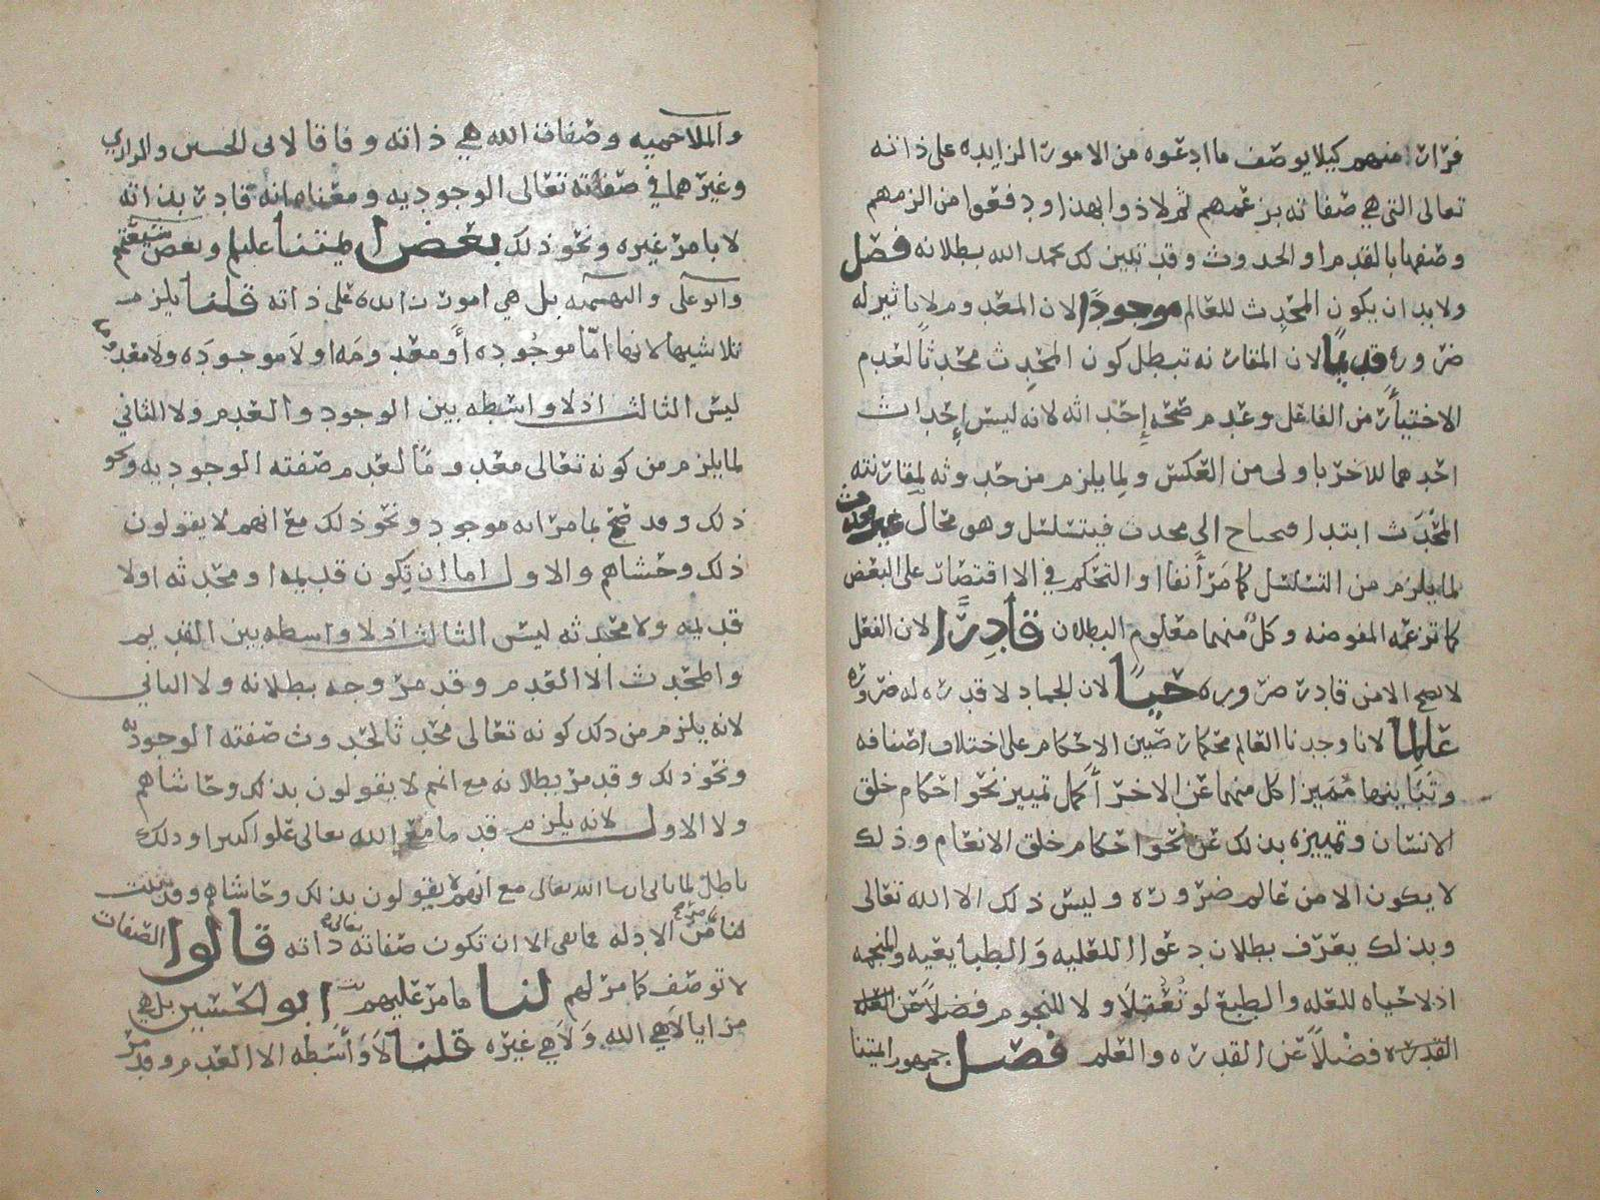 فرارا منهم كيلا يوصف ما ادعوه من الامور الزايده على ذاته
تعالى التي هي صفاته بزعمهم ثم لاذوا بهذا ودفعوا من الزمهم
وصفها بالقدم او الحدوث وقد تبين لك بحمد الله بطلانه فصل
ولا بد ان يكون المحدث للعالم موجودًا لان المعدوم لا تاثير له
ضروره قديمًا لان المقارنه تبطل كون المحدث محدثًا لعدم
الاختيار من الفاعل وعدم صحه إحداثه لانه ليس إحداث
احدهما للاخر باولى من العكس ولما يلزم من حدوثه لمقارنته
المحدث ابتدا فيحتاج الى محدث فيتسلسل وهو محال غير محدث
لما يلزم من التسلسل كما مر أنفا او التحكم في الاقتصار على البعض
كما تزعمه المفوضه وكلٌ منهما معلوم البطلان قادِرًا لان الفعل
لا يصح الا من قادر ضروره حيًا لان الجماد لا قدره له ضروره
عالما لانا وجدنا العالم محكما رصين الاحكام على اختلاف اصنافه
وتباينها مميزا كل منهما عن الاخر أكمل تمييز نحو احكام خلق
الانسان وتمييزه بذلك عن نحو احكام خلق الانعام وذلك
لا يكون الا من عالم ضروره وليس ذلك الا الله تعالى
وبذلك يعرف بطلان دعوا العليه والطبايعيه والمنجمه
اذ لا حياه للعله والطبع لو تُعُقِّلا ولا للنجوم فضلاً عن
القدره فضْلاً عن القدره والعلم فصل جمهور ايمتنا
والملاحميه وصفات الله هي ذاته وفاقا لابي الحسين والرازي
وغيرهما في صفاته تعالى الوجوديه ومعناه انه قادر بذاته
لا بامر غيره ونحو ذلك بعض ايمتنا عليلم وبعض شيعتهم
وابو علي والبهشميه بل هي امور زايده على ذاته قلنا يلزم
تلاشيها لانها امّا موجُوده أو معدومَه او لَا موجودَه ولَا معدومه
ليس الثالث اذ لا واسطه بين الوجود والعدم ولا الثاني
لما يلزم من كونه تعالى معدومًا لعدم صفته الوجوديه ونحو
ذلك وقد صح بما مر انه موجود ونحو ذلك مع انهم لا يقولون
ذلك وحشاهم والاول اما ان تكون قديمه او محدثه او لا
قديمه ولا محدثه ليس الثالث اذ لا واسطه بين القديم
والمحدث الا العدم وقد مر وجه بطلانه ولا الثاني
لانه يلزم من ذلك كونه تعالى محدثا لحدوث صفته الوجوديه
ونحو ذلك وقد مر بطلانه مع انهم لا يقولون بذلك وحاشاهم
ولا الاول لانه يلزم قدما مع الله تعالى علوا كبيرا وذلك
باطل لما ياتي ان شا الله تعالى مع انهم لا يقولون بذلك وحاشاهم وقد
لنا ما مر من الادله فما بقي الا ان تكون صفاته تعالى ذاته قالوا الصفات
لا توصف كما مر لهم لنا ما مر عليهم ابو الحسين بل هي
مزايا لَا هي الله وَلَا هي غيره قلنا لَا وَاسَطه الا العدم وقد مر